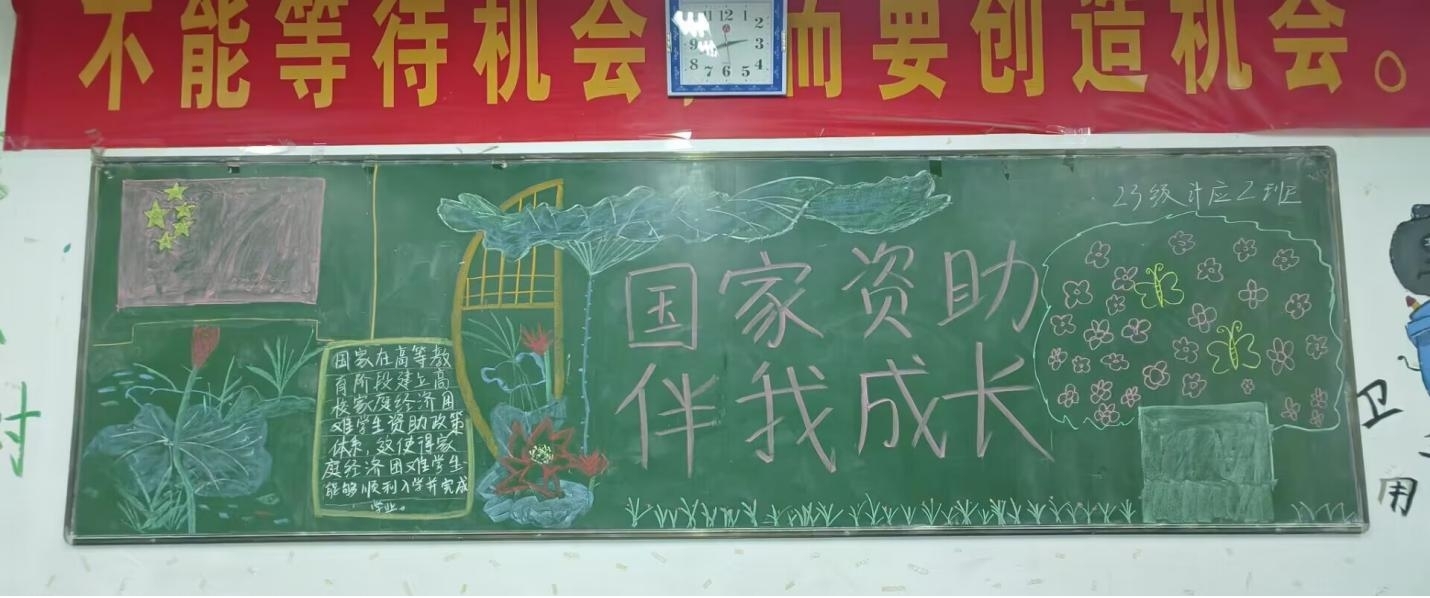 不能等待机会，而要创造机会。
23级计应2班
国家资助
伴我成长
国家在高等教
育阶段建立高
校家庭经济困
难学生资助政策
体系，致使得家
庭经济困难学生
能够顺利入学并完成
学业。
卫
用